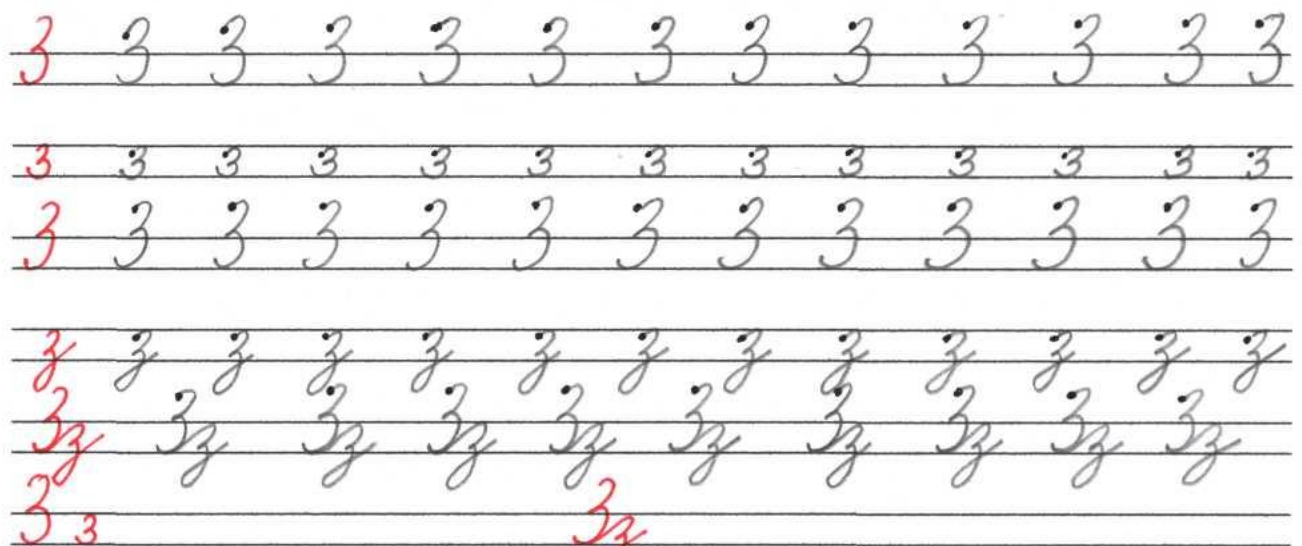 З З З З З З З З З З З З З
з з з з з з з з з з з з з
З З З З З З З З З З З З З
з з з з з з з з з з з з з
Зз Зз Зз Зз Зз Зз Зз Зз Зз Зз
З з Зз